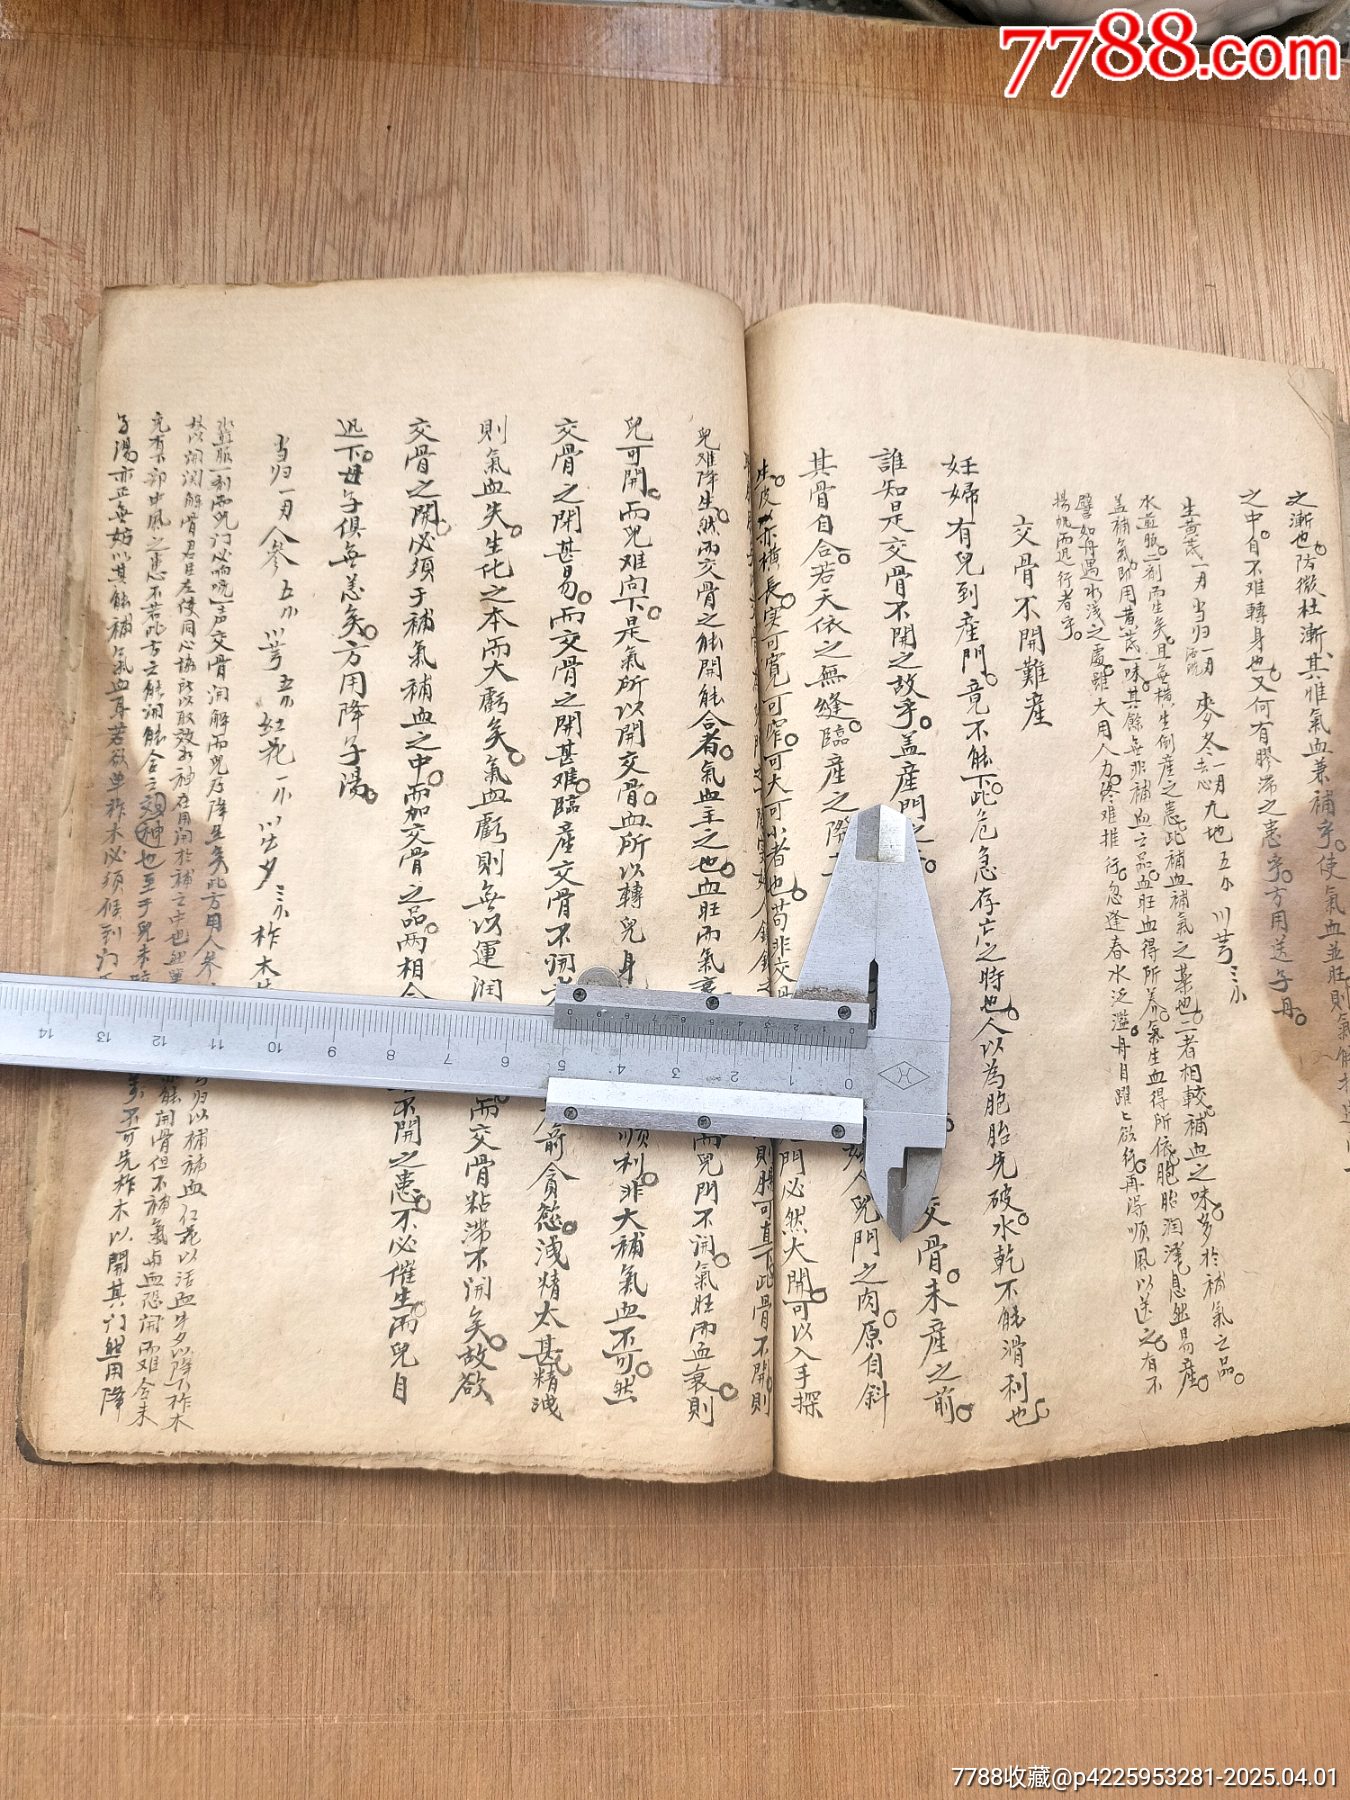 7788.com
之漸也防微杜漸其惟氣血兼補乎使氣血並旺則氣能推送
之中自不難轉身也又何有膠滯之患乎方用送子丹
生黃芪一月 当归一月酒洗 麥冬一月去心 九地五小 川芎三小
水煎服二剂而生矣且每橫生倒產之患此補血補氣之藥也二者相較補血之味多於補氣之品
盖補氣助用黃芪一味其餘無非補血之品血旺血得所养氣生血得所依胞胎潤澤息然易產
譬如舟遇水浅之處雖大用人力终难推行忽逢春水泛溢舟自躍以欲行再得順風以送之有不
揚帆而迅行者乎
交骨不開難產
妊婦有兒到產門竟不能下此危急存亡之時也人以為胞胎先破水乾不能滑利也
誰知是交骨不開之故乎盖產門之 交骨未產之前
其骨自合若天依之無縫臨產之際 婦人兒門之肉原自斜
生皮亦橫長实可寬可窄可大可小者也苟非交骨 門必然大開可以入手探
則胎可直下此骨不開則
兒难降生然而交骨之能開能合者氣血主之也血旺而氣衰 而兒門不開氣旺而血衰則
兒可開而兒难向下是氣所以開交骨血所以轉兒身 順利非大補氣血不可然
交骨之閉甚易而交骨之開甚难臨產交骨不開者 前貪慾洩精太甚精洩
則氣血失生化之本而大虧矣氣血虧則無以運潤 而交骨粘滯不開矣故欲
交骨之開必須于補氣補血之中而加交骨之品兩相合 不開之患不必催生而兒自
迅下母子俱無恙矣方用降子湯
当归一月 人參五小 川芎五小 红花一小 川牛夕三小 柞木
水煎服一剂而兒门必响呒一声交骨開解而兒乃降生矣此方用人參 归以補血红花以活血牛夕以降下柞木
故以開関解骨君臣左使同心協所以取效於神在用開於補之中也然單 能開骨但不補氣与血恐開而难合未
免有下部中風之患不若此方之能開能合之神也至于兒未
子湯亦正無妨以其能補氣血耳若欲單柞木必須候到门 不可先柞木以開其门然用降
14 13 12 11 10 9 8 7 6 5 4 3 2 1 0
7788收藏@p4225953281-2025.04.01